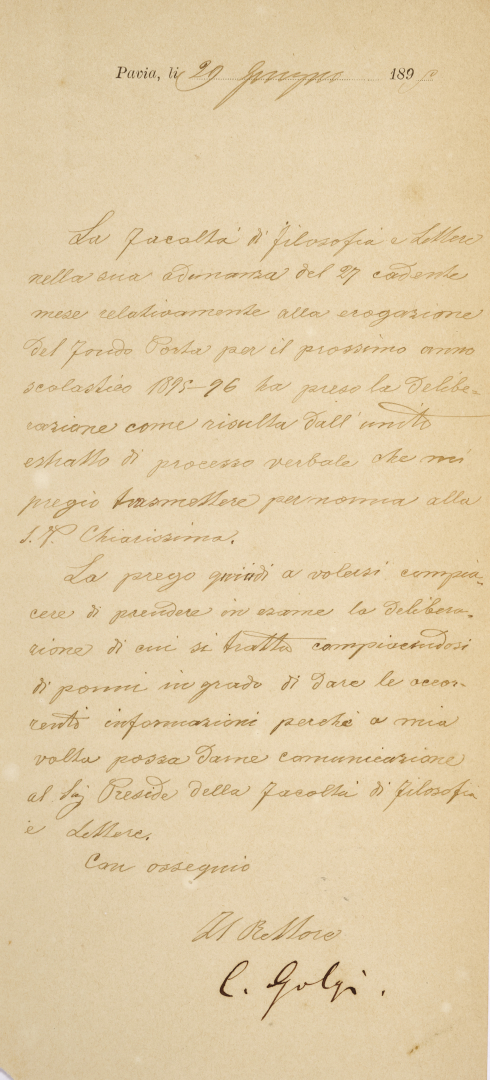 Pavia, li 29 Giugno 189
La Facoltà di Filosofia e Lettere
nella sua adunanza del 27 cadente
mese relativamente alla erogazione
del Fondo Porta per il prossimo anno
scolastico 1895-96 ha preso la delibe-
razione come risulta dall'unito
estratto di processo verbale che mi
pregio trasmettere per norma alla
S. V. Chiarissima.
La prego quindi a volersi compia-
cere di prendere in esame la delibera-
zione di cui si tratta compiacendosi
di pormi in grado di dare le occor-
renti informazioni perchè a mia
volta possa darne comunicazione
al Sig Preside della Facoltà di Filosofia
e Lettere.
Con ossequio
Il Rettore
C. Golgi.